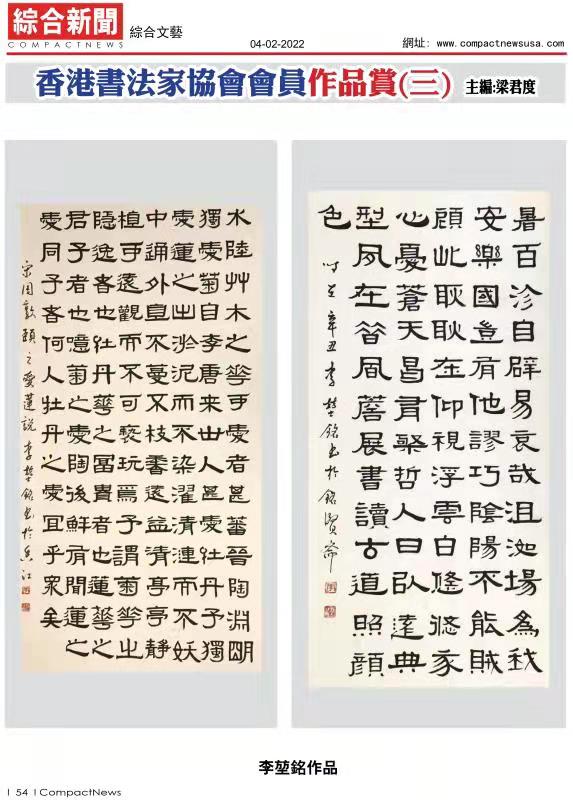 綜合新聞
COMPACTNEWS
綜合文藝
04-02-2022
網址: www.compactnewsusa.com
香港書法家協會會員作品賞(三)
主編:梁君度
暑百沴自辟易哀哉沮洳場為我
安樂國豈有他謬巧陰陽不能賊
顧此耿耿在仰視浮雲白悠悠我
心憂蒼天曷有極哲人日以遠典
型夙在昔風簷展書讀古道照顏
色
時在辛丑李堃銘書於銘賢齋
水陸艸木之花可愛者甚蕃晉陶淵明
獨愛菊自李唐來世人甚愛牡丹予獨
愛蓮之出淤泥而不染濯清漣而不妖
中通外直不蔓不枝香遠益清亭亭靜
植可遠觀而不可褻玩焉予謂菊花之
隱逸者也牡丹花之富貴者也蓮花之
君子者也噫菊之愛陶後鮮有聞蓮之
愛同予者何人牡丹之愛宜乎眾矣
宋周敦頤之愛蓮說 李堃銘書於香江
李堃銘作品
54
CompactNews